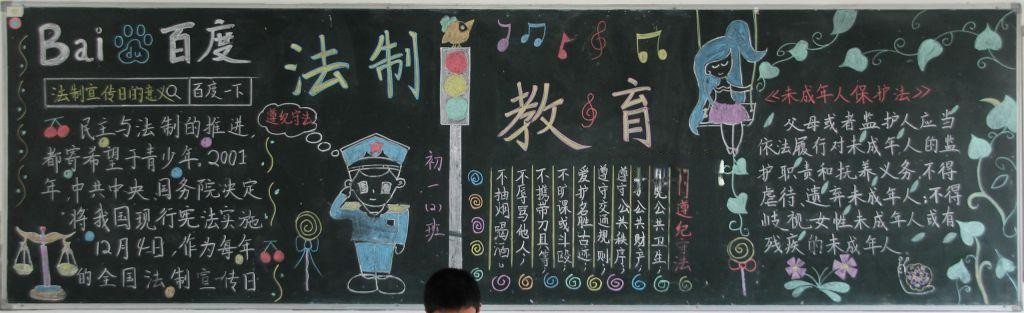 Bai 百度
法制宣传日的意义
百度一下
民主与法制的推进，
都寄希望于青少年。2001
年，中共中央、国务院决定
将我国现行宪法实施
12月4日，作为每年
的全国法制宣传日
遵纪守法
法制
教育
初一(2)班
遵纪守法
公共卫生
公共财产
遵守公共秩序
遵守交通规则
爱护名胜古迹
不旷课或斗殴
不携带刀具等
不辱骂他人
不抽烟喝酒
《未成年人保护法》
父母或者监护人应当
依法履行对未成年人的监
护职责和抚养义务，不得
虐待、遗弃未成年人；不得
歧视女性未成年人或有
残疾的未成年人